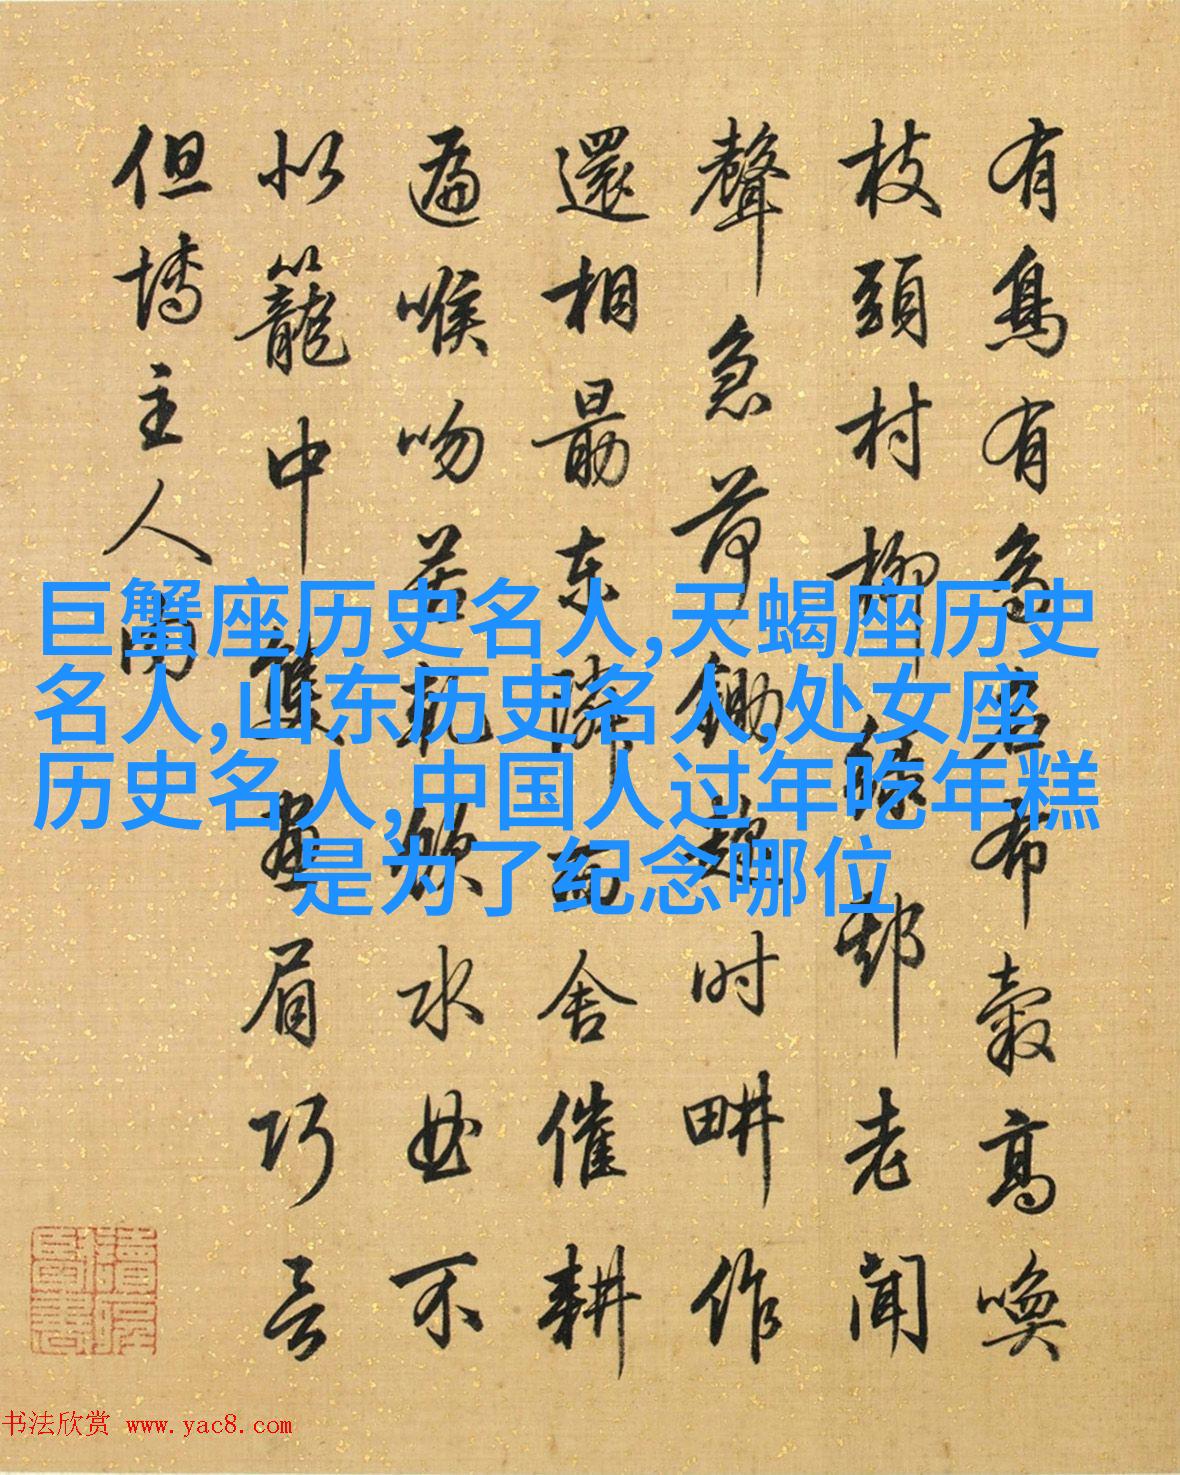 有鳥有鳥名布穀高喚
枝頭村柳綠老聞
聲急荷鋤趨時畊作
還相勗东隣西舍催耕
遍喉吻若乾飲水不
似籠中雙畫眉巧言
但主人
巨蟹座历史名人,天蝎座历史
名人,山东历史名人,处女座
历史名人,中国人过年吃年糕
是为了纪念哪位
书法欣赏 www.yac8.com